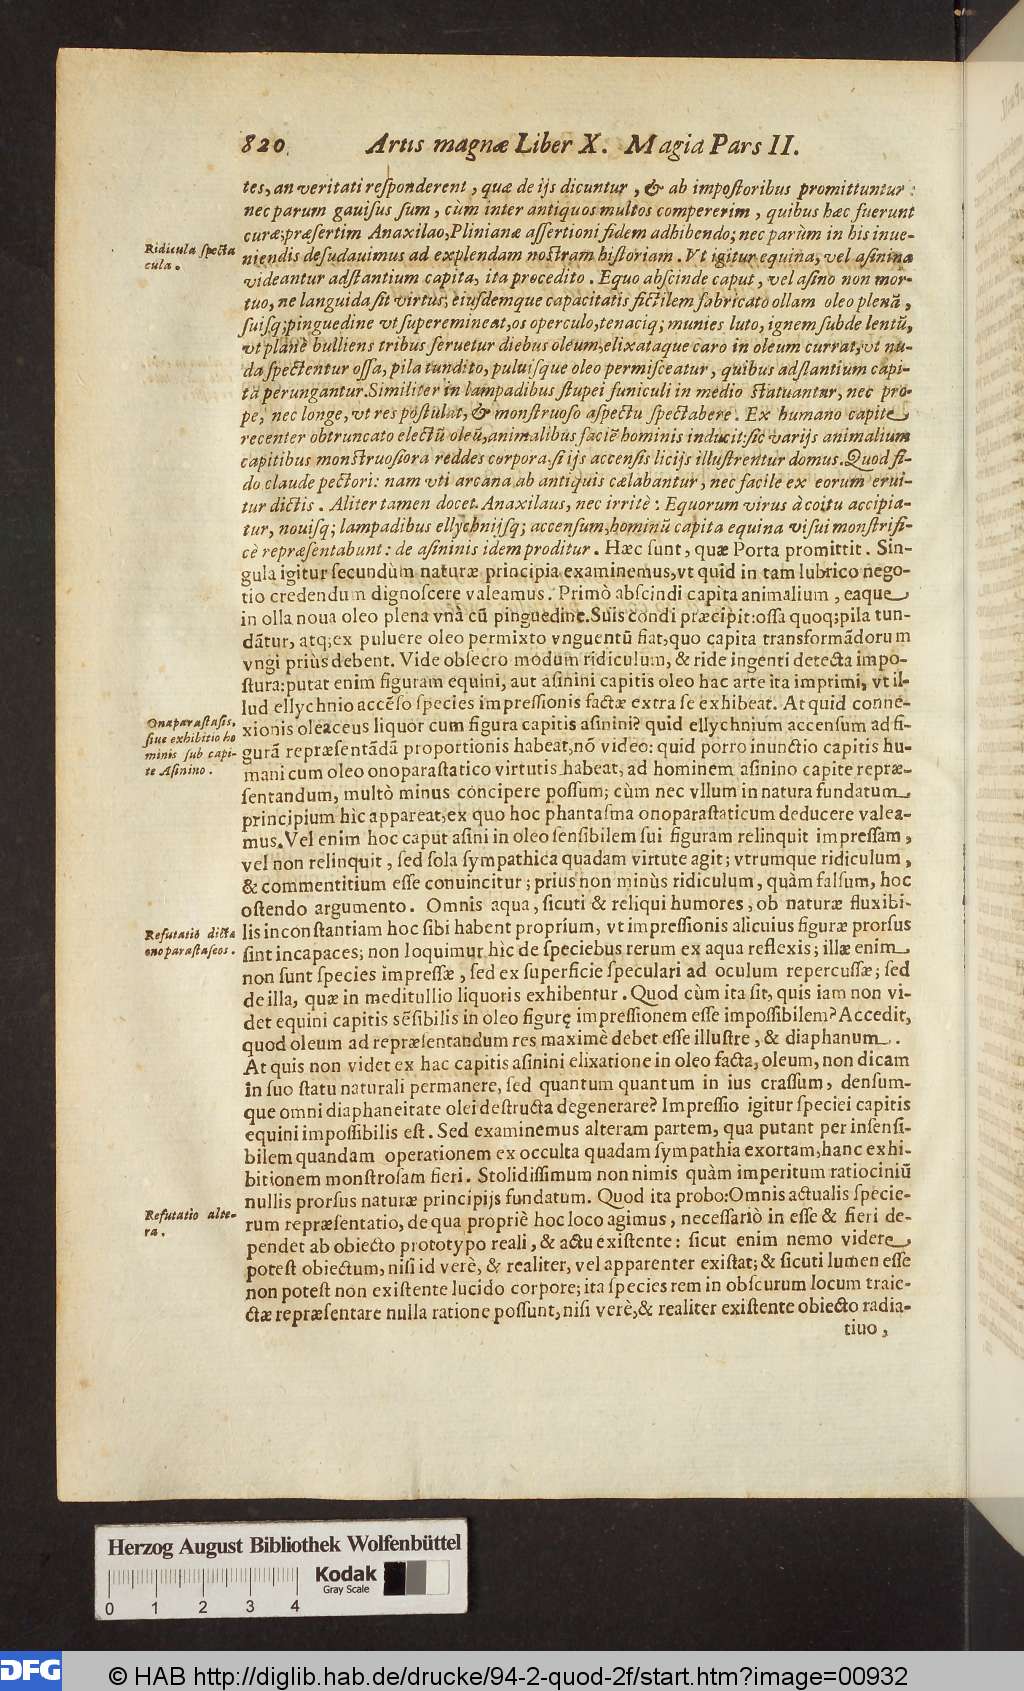 820 Artis magnæ Liber X. Magia Pars II.
tes, an veritati responderent, quæ de ijs dicuntur, & ab impostoribus promittuntur:
nec parum gauisus sum, cùm inter antiquos multos compererim, quibus hæc fuerunt
curæ; præsertim Anaxilao, Plinianæ assertioni fidem adhibendo; nec parùm in his inue-
Ridicula specta
cula.
niendis desudauimus ad explendam nostram historiam. Vt igitur equina, vel asinina
videantur adstantium capita, ita procedito. Equo abscinde caput, vel asino non mor-
tuo, ne languida sit virtus, eiusdemque capacitatis fictilem fabricato ollam oleo plenã,
suisq; pinguedine vt superemineat, os operculo, tenaciq; munies luto, ignem subde lentũ,
vt planè bulliens tribus seruetur diebus oleum, elixataque caro in oleum currat, vt nu-
da spectentur ossa, pila tundito, puluisque oleo permisceatur, quibus adstantium capi-
ta perungantur. Similiter in lampadibus stupei funiculi in medio statuantur, nec pro-
pe, nec longe, vt res postulat, & monstruoso aspectu spectabere. Ex humano capite
recenter obtruncato electũ oleũ, animalibus faciẽ hominis inducit: sic varijs animalium
capitibus monstruosiora reddes corpora, si ijs accensis licijs illustrentur domus. Quod fi-
do claude pectori: nam vti arcana ab antiquis cælabantur, nec facile ex eorum erui-
tur dictis. Aliter tamen docet Anaxilaus, nec irritè: Equorum virus à coitu accipia-
tur, nouisq; lampadibus ellychnijsq; accensum, hominũ capita equina visui monstrifi-
cè repræsentabunt: de asininis idem proditur. Hæc sunt, quæ Porta promittit. Sin-
gula igitur secundùm naturæ principia examinemus, vt quid in tam lubrico nego-
tio credendum dignoscere valeamus. Primò abscindi capita animalium, eaque
in olla noua oleo plena vnà cũ pinguedine Suis condi præcipit: ossa quoq; pila tun-
dãtur, atq; ex puluere oleo permixto vnguentũ fiat, quo capita transformãdorum
vngi priùs debent. Vide obsecro modum ridiculum, & ride ingenti detecta impo-
stura: putat enim figuram equini, aut asinini capitis oleo hac arte ita imprimi, vt il-
lud ellychnio accẽso species impressionis factæ extra se exhibeat. At quid conne-
Onaparastasis,
siue exhibitio ho
minis sub capi-
te Asinino.
xionis oleaceus liquor cum figura capitis asinini? quid ellychnium accensum ad fi-
gurã repræsentãdã proportionis habeat, nõ video: quid porro inunctio capitis hu-
mani cum oleo onoparastatico virtutis habeat, ad hominem asinino capite repræ-
sentandum, multò minus concipere possum; cùm nec vllum in natura fundatum
principium hìc appareat, ex quo hoc phantasma onoparastaticum deducere valea-
mus. Vel enim hoc caput asini in oleo sensibilem sui figuram relinquit impressam,
vel non relinquit, sed sola sympathica quadam virtute agit; vtrumque ridiculum,
& commentitium esse conuincitur; prius non minùs ridiculum, quàm falsum, hoc
ostendo argumento. Omnis aqua, sicuti & reliqui humores, ob naturæ fluxibi-
Refutatio dictæ
onoparastaseos.
lis inconstantiam hoc sibi habent proprium, vt impressionis alicuius figuræ prorsus
sint incapaces; non loquimur hìc de speciebus rerum ex aqua reflexis; illæ enim
non sunt species impressæ, sed ex superficie speculari ad oculum repercussæ; sed
de illa, quæ in meditullio liquoris exhibentur. Quod cùm ita sit, quis iam non vi-
det equini capitis sẽsibilis in oleo figurę impressionem esse impossibilem? Accedit,
quod oleum ad repræsentandum res maximè debet esse illustre, & diaphanum.
At quis non videt ex hac capitis asinini elixatione in oleo facta, oleum, non dicam
in suo statu naturali permanere, sed quantum quantum in ius crassum, densum-
que omni diaphaneitate olei destructa degenerare? Impressio igitur speciei capitis
equini impossibilis est. Sed examinemus alteram partem, qua putant per insensi-
bilem quandam operationem ex occulta quadam sympathia exortam, hanc exhi-
bitionem monstrosam fieri. Stolidissimum non nimis quàm imperitum ratiociniũ
nullis prorsus naturæ principijs fundatum. Quod ita probo: Omnis actualis specie-
Refutatio alte-
ra.
rum repræsentatio, de qua propriè hoc loco agimus, necessariò in esse & fieri de-
pendet ab obiecto prototypo reali, & actu existente: sicut enim nemo videre
potest obiectum, nisi id verè, & realiter, vel apparenter existat; & sicuti lumen esse
non potest non existente lucido corpore; ita species rem in obscurum locum traie-
ctæ repræsentare nulla ratione possunt, nisi verè, & realiter existente obiecto radia-
tiuo,
Herzog August Bibliothek Wolfenbüttel
Kodak
Gray Scale
0 1 2 3 4
DFG © HAB http://diglib.hab.de/drucke/94-2-quod-2f/start.htm?image=00932